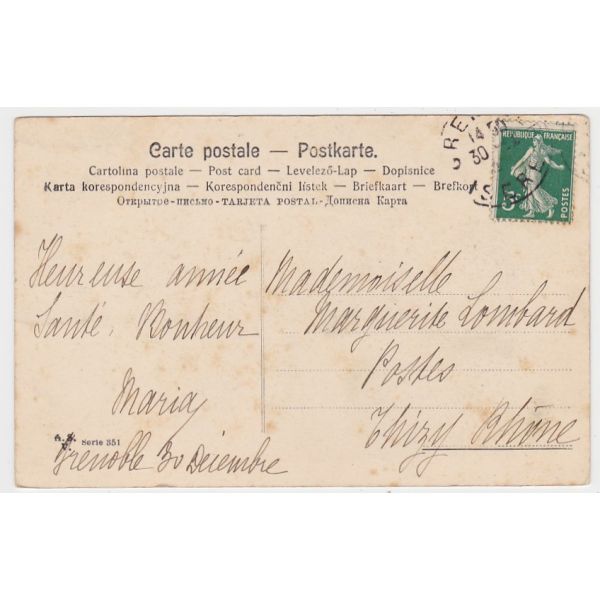 Carte postale — Postkarte.
Cartolina postale — Post card — Levelező-Lap — Dopisnice
Karta korespondencyjna — Korespondenční lístek — Briefkaart — Brefkort
Открытое-письмо-TARJETA POSTAL-Дописна Карта
RÉPUBLIQUE FRANÇAISE
POSTES
14
30
ISERE
Heureuse année
Santé, Bonheur
Maria
Serie 351
Grenoble 30 Décembre
Mademoiselle
Marguerite Lombard
Postes
Thizy Rhône